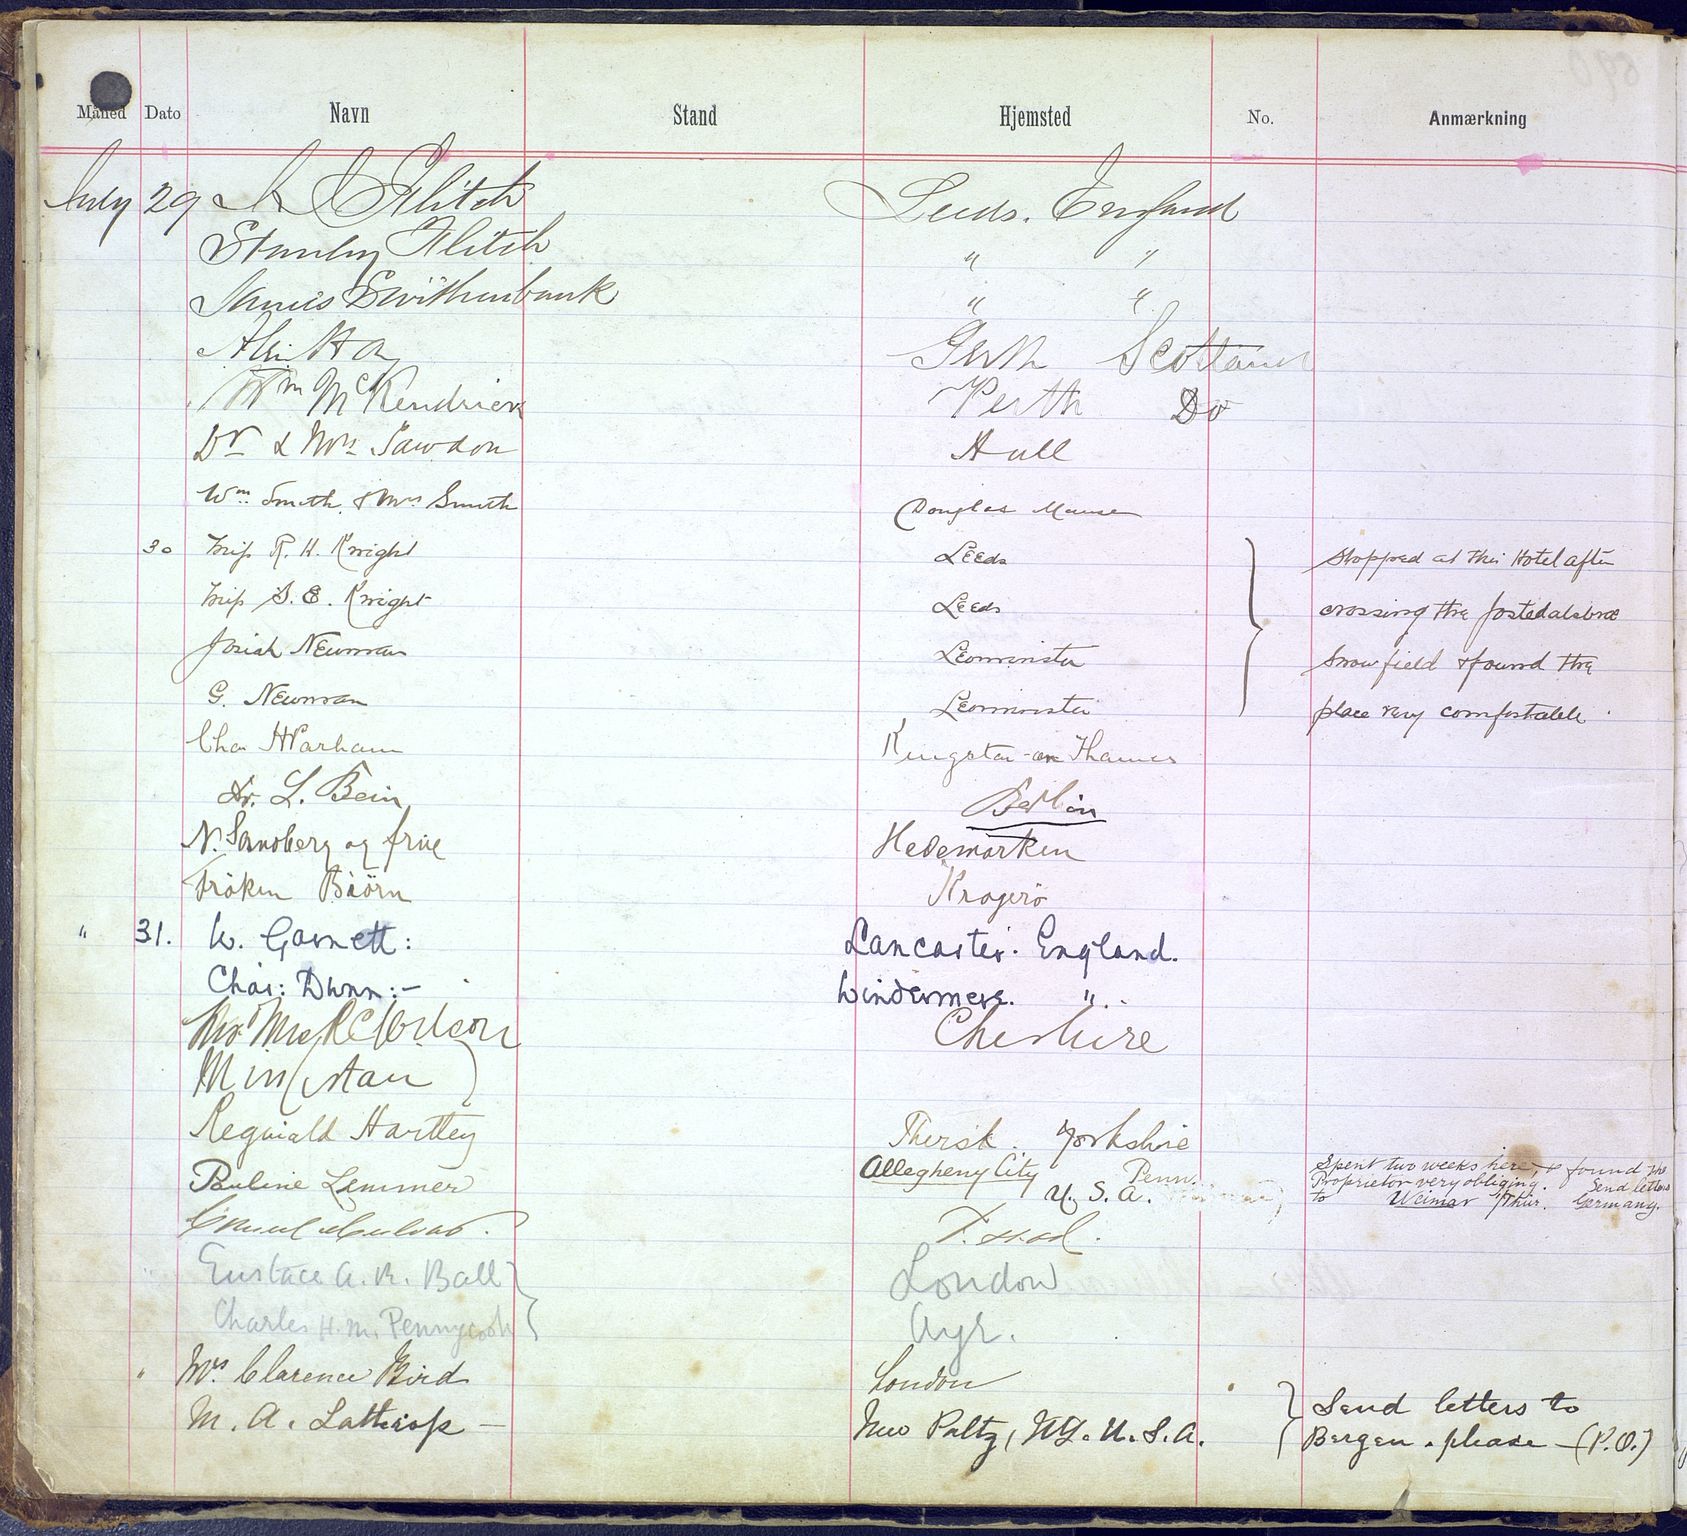 Maaned Dato Navn Stand Hjemsted No. Anmærkning
July 29 Flitch Leeds. England
Stanley Flitch " "
James Swithenbank " "
Alex Hay Perth Scotland
Wm McKendrick Perth Do
Dr & Mrs Sawdon Hull
Wm Smith. & Mrs Smith Douglas
30 Miss R. H. Knight Leeds Stopped at this Hotel after
Miss S. E. Knight Leeds crossing the Jostedalsbræ
Josiah Newman Leominster Snowfield & found the
G. Newman Leominster place very comfortable.
Chas Parham Kingston-on-Thames
Dr. L. Bein Berlin
N. Sandberg og frue Hedemarken
Frøken Biørn Kragerö
" 31. W. Garnett: Lancaster. England.
Chas: Dunn:- Windermere. "
Mr Mrs R C Wilson Cheshire
Miss
Reginald Hartley Thirsk. Yorkshire
Pauline Lemmer Allegheny City Penn. U. S. A. Spent two weeks here, & found the
Proprietor very obliging. Send letters
to Weimar /Thür. Germany.
Eustace A. R. Ball London
Charles H. M. Pennycook Ayr.
" Mrs. Clarence Bird London
M. A. Lathrop - New Paltz, N.Y. U.S.A. Send letters to
Bergen. please - (P.O.)